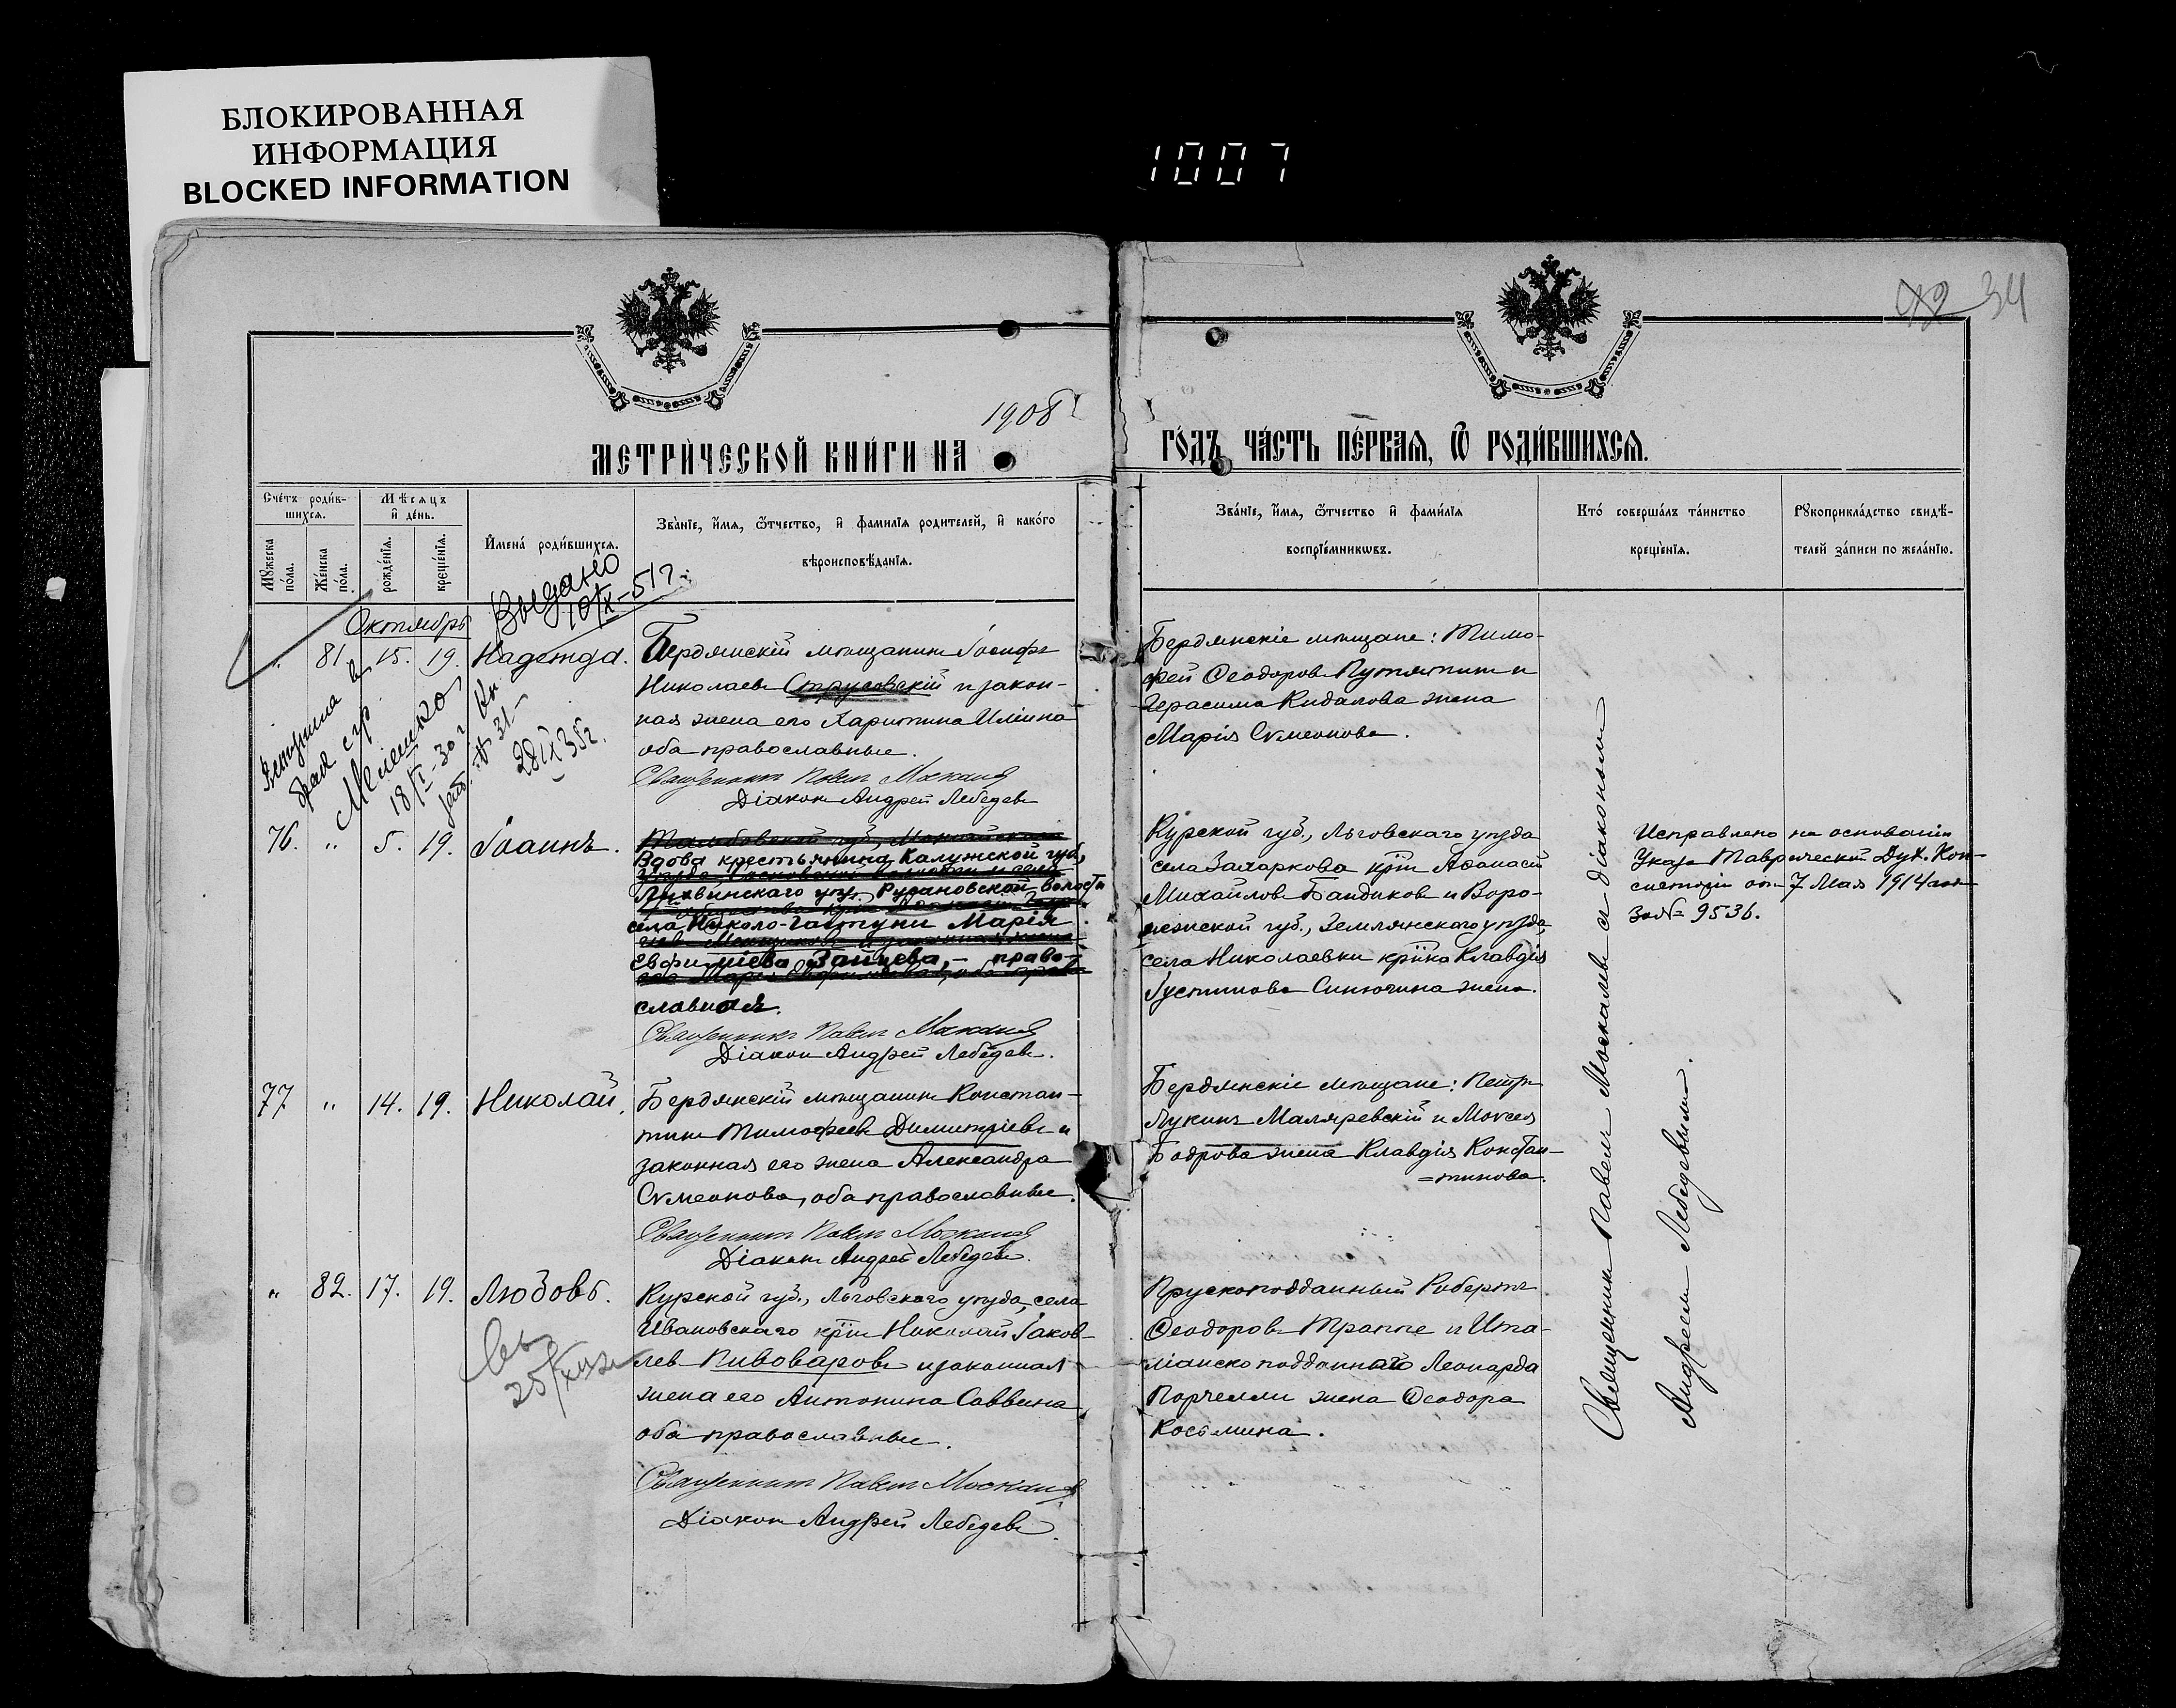 БЛОКИРОВАННАЯ
ИНФОРМАЦИЯ
BLOCKED INFORMATION
1007
34
1908
МЕТРИЧЕСКОЙ КНИГИ НА
ГОДЪ, ЧАСТЬ ПЕРВАЯ, Ѿ РОДИВШИХСЯ.
Счетъ родив-
шихся.
Мужеска
пола.
Женска
пола.
Мѣсяцъ
и день.
рожденїя.
крещенїя.
Имена родившихся.
Званїе, имя, ѿтчество, и фамилїя родителей, и какого
вѣроисповѣданїя.
Званїе, имя, ѿтчество и фамилїя
воспрїемниковъ.
Кто совершалъ таинство
крещенїя.
Рукоприкладство свидѣ-
телей записи по желанїю.
Выдано
10/IX-51г.
Октябрь
" 81. 15. 19. Надежда.
Бердянскій мѣщанинъ Іосифъ
Николаевъ Струсовскій и закон-
ная жена его Харитина Иліина
оба православные.
Священникъ Павелъ Москалевъ
Діаконъ Андрей Лебедевъ
Бердянскіе мѣщане: Тимо-
фей Ѳеодоровъ Путятинъ и
Герасима Кидалова жена
Марія Сѵмеонова.
Мелешко
18/VI-30г.
28IX35г.
76. " 5. 19. Іоаннъ.
Вдова крестьянина Калужской губ.,
Лихвинскаго уѣз. Русановской волости
села Николо-Гастуни Марія
Евфиміева Зайцева, - право-
славная.
Священникъ Павелъ Москалевъ
Діаконъ Андрей Лебедевъ.
Курской губ., Льговскаго уѣзда
села Захаркова кр҃нъ Аѳанасій
Михайловъ Бандиковъ и Воро-
нежской губ., Землянскаго уѣзда,
села Николаевки кр҃нка Клавдія
Іустинова Синюгина жена.
Исправлено на основаніи
Указа Таврической Дух. Кон-
систоріи отъ 7 Мая 1914 года
за № 9536.
77 " 14. 19. Николай.
Бердянскій мѣщанинъ Констан-
тинъ Тимофеевъ Димитріевъ и
законная его жена Александра
Сѵмеонова, оба православные.
Священникъ Павелъ Москалевъ
Діаконъ Андрей Лебедевъ.
Бердянскіе мѣщане: Петръ
Лукинъ Маляревскій и Моисея
Бодрова жена Клавдія Констан-
=тинова.
" 82. 17. 19. Любовь.
Курской губ., Льговскаго уѣзда, села
Ивановскаго кр҃нъ Николай Іаков-
левъ Пивоваровъ и законная
жена его Антонина Саввина
оба православные.
Священникъ Павелъ Москалевъ
Діаконъ Андрей Лебедевъ.
Прускоподданный Робертъ
Ѳеодоровъ Траппе и Ита-
ліанскоподданнаго Леонарда
Порчелли жена Ѳеодора
Косьмина.
Священникъ Павелъ Москалевъ съ діакономъ
Андреемъ Лебедевымъ.